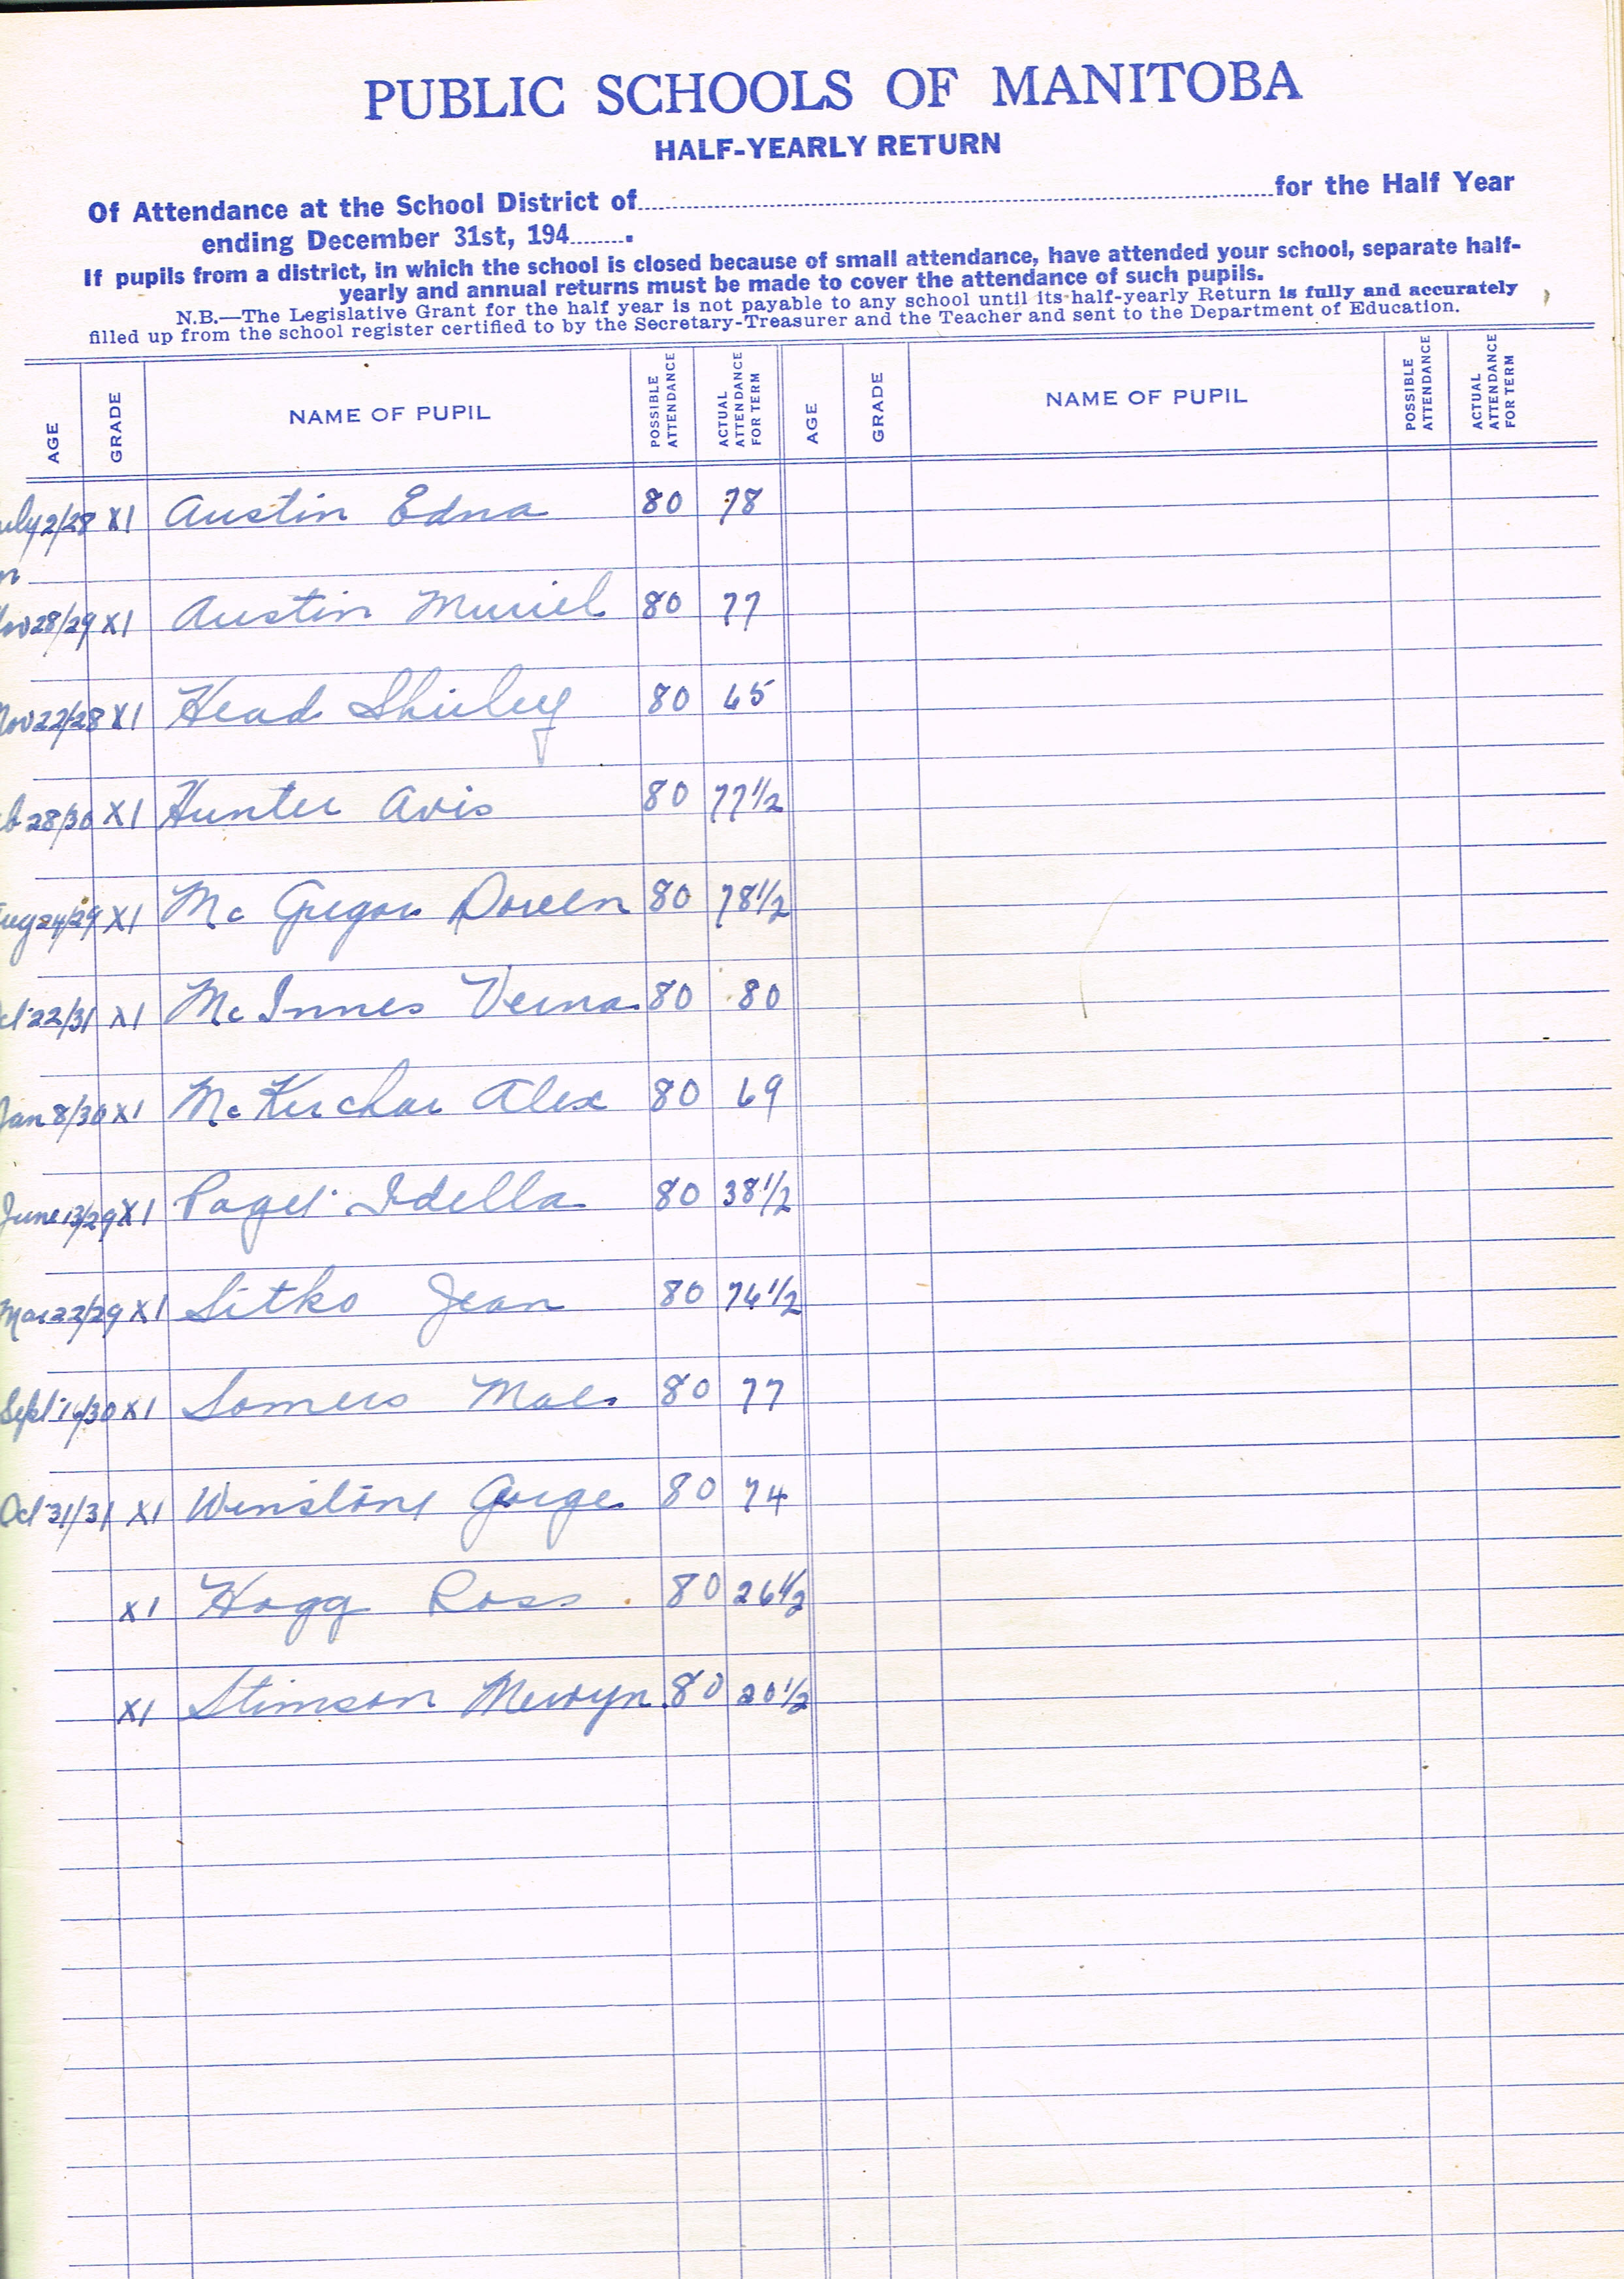 PUBLIC SCHOOLS OF MANITOBA
HALF-YEARLY RETURN
Of Attendance at the School District of..........for the Half Year
ending December 31st, 194........
If pupils from a district, in which the school is closed because of small attendance, have attended your school, separate half-
yearly and annual returns must be made to cover the attendance of such pupils.
N.B.—The Legislative Grant for the half year is not payable to any school until its half-yearly Return is fully and accurately
filled up from the school register certified to by the Secretary-Treasurer and the Teacher and sent to the Department of Education.
AGE GRADE NAME OF PUPIL POSSIBLE ATTENDANCE ACTUAL ATTENDANCE FOR TERM AGE GRADE NAME OF PUPIL POSSIBLE ATTENDANCE ACTUAL ATTENDANCE FOR TERM
uly 2/28 XI Austin Edna 80 78
28/29 XI Austin Muriel 80 77
Nov 22/28 XI Head Shirley 80 65
b 28/30 XI Hunter Avis 80 77 1/2
ug 24/29 XI Mc Gregor Doreen 80 78 1/2
ct 22/31 XI Mc Innes Verna 80 80
Jan 8/30 XI Mc Kerchar Alex 80 69
June 13/29 XI Paget Idella 80 38 1/2
Mar 22/29 XI Sitko Jean 80 74 1/2
Sept 16/30 XI Somers Mae 80 77
Oct 31/31 XI Winstone George 80 74
XI Hogg Ross 80 26 1/2
XI Stimson Mervyn 80 20 1/2